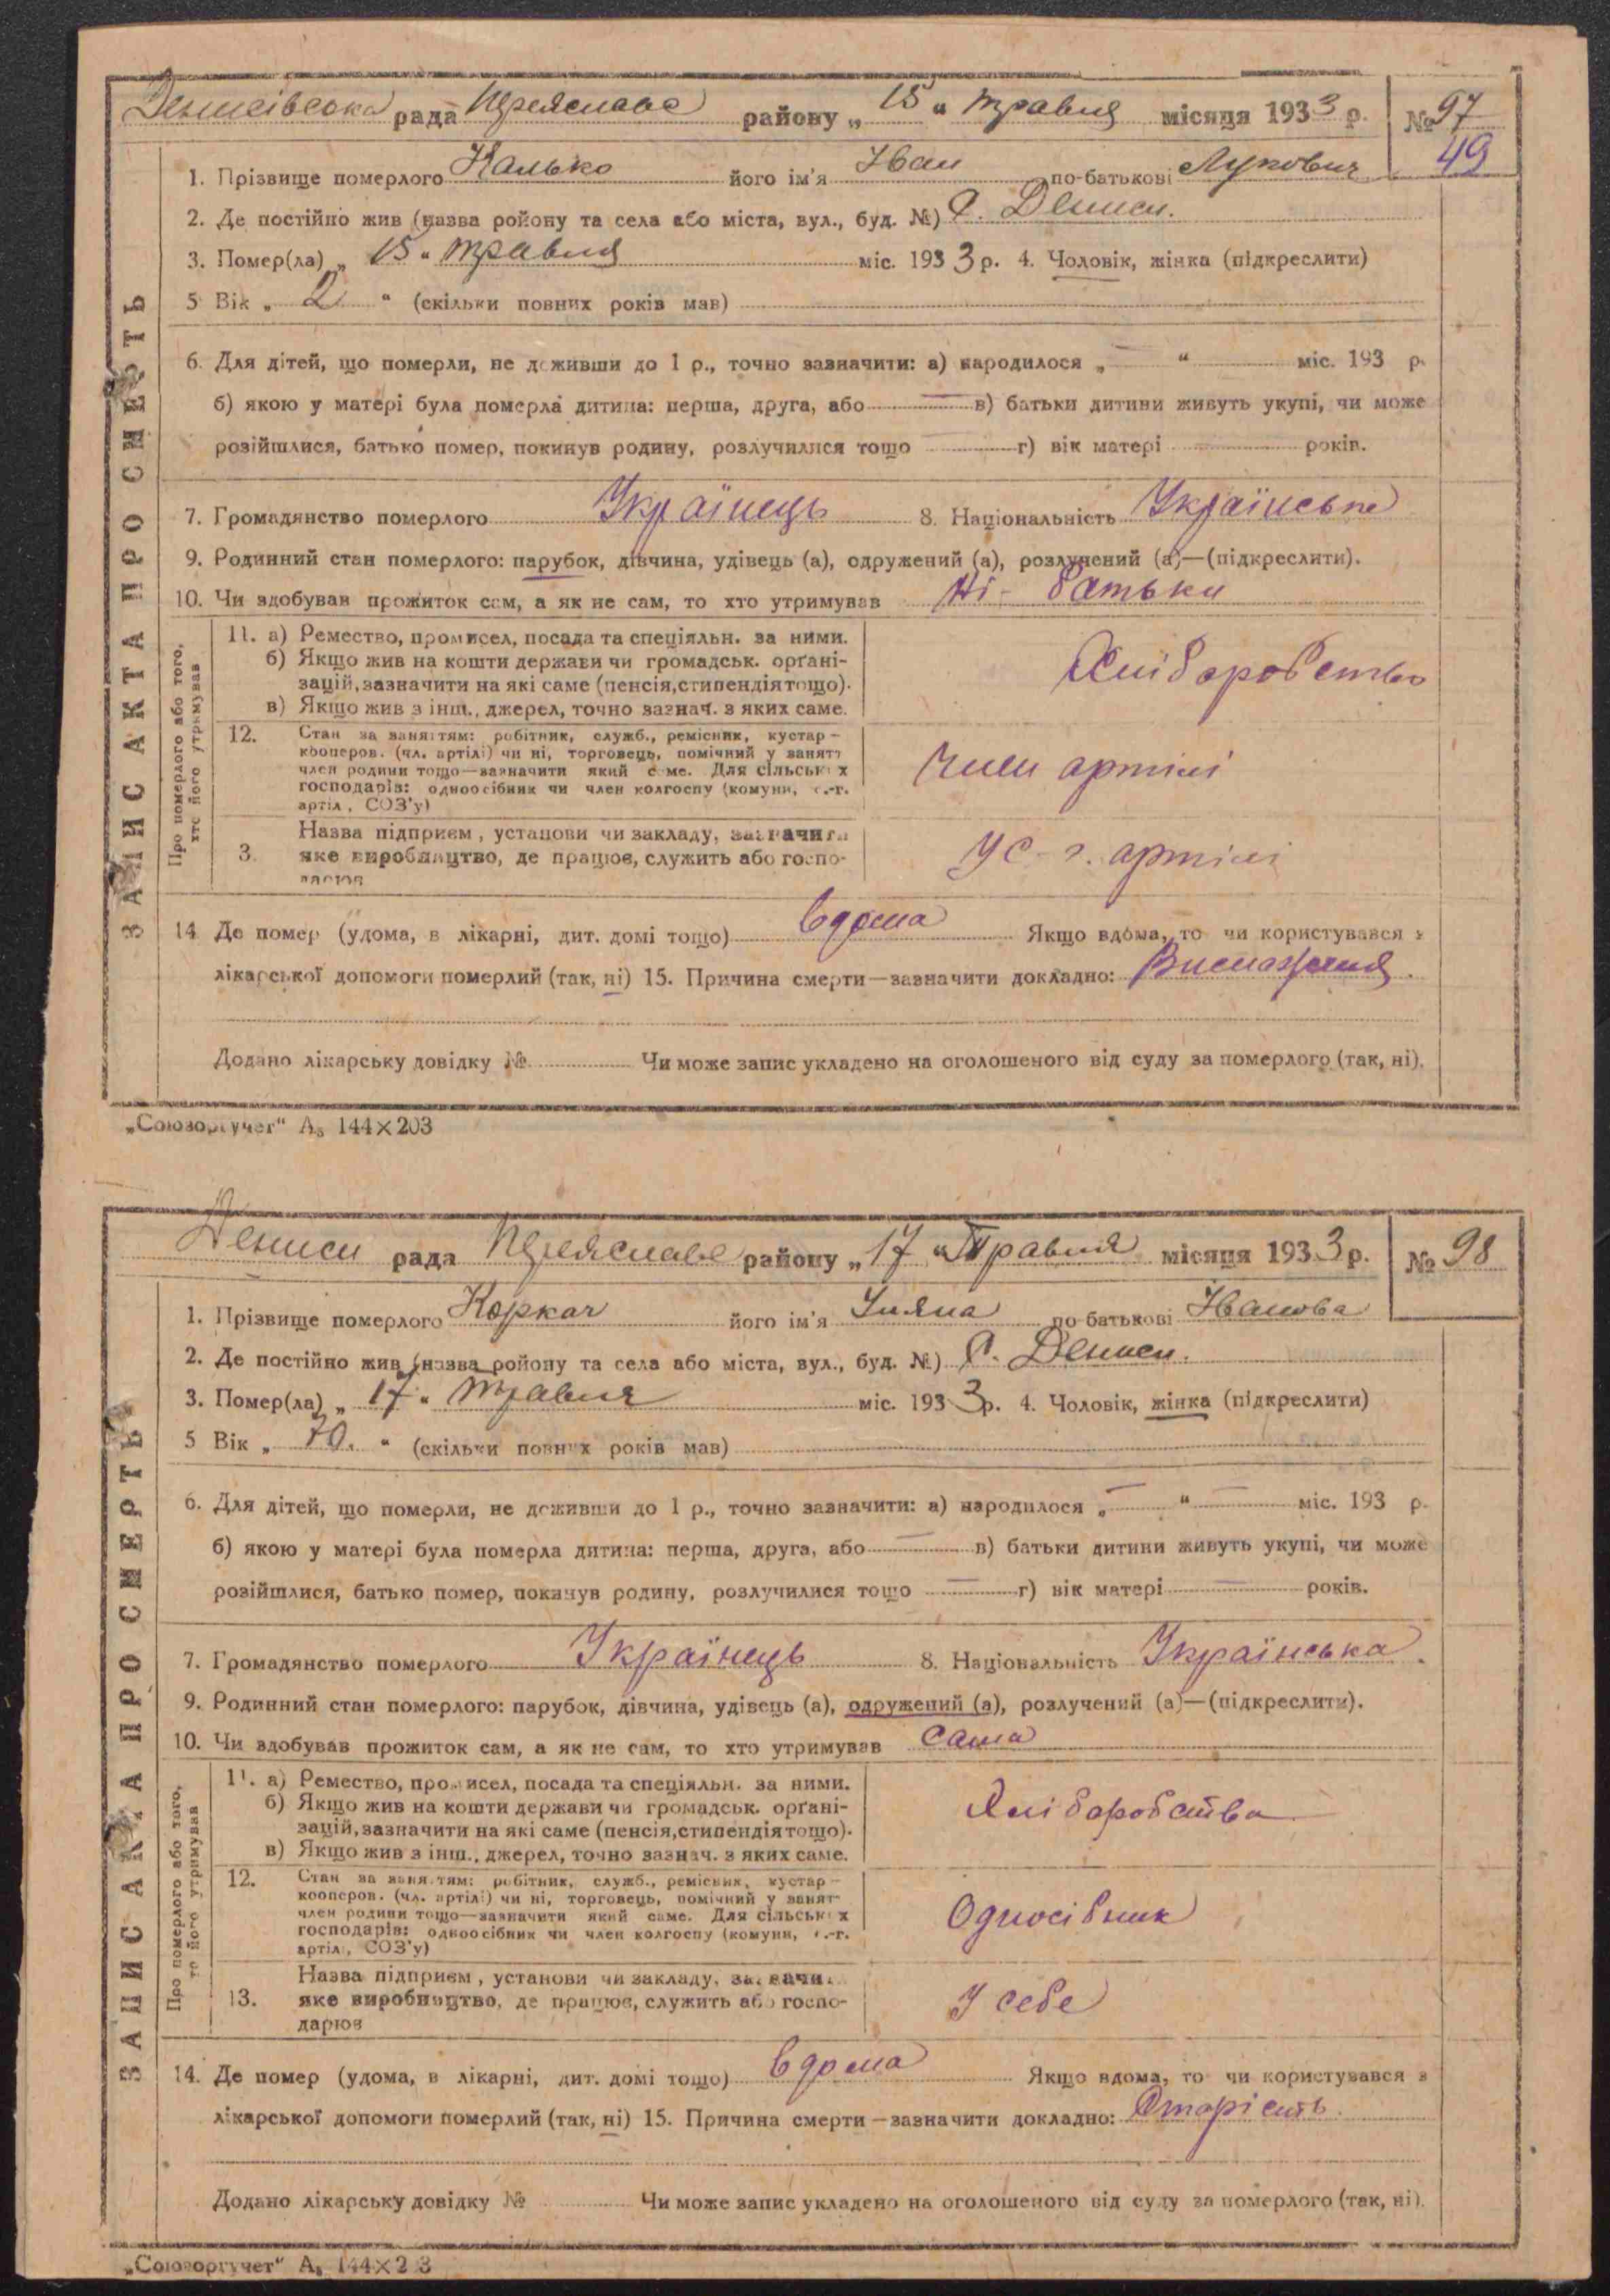 Денисівська рада Переяславс району „15“ травня місяця 1933 р. № 97
49
1. Прізвище померлого Калько його ім'я Іван по-батькові Лукович
2. Де постійно жив (назва ройону та села або міста, вул., буд. №) С. Дениси.
3. Помер(ла) „15“ травня міс. 1933 р. 4. Чоловік, жінка (підкреслити)
5 Вік „2“ (скільки повних років мав)
6. Для дітей, що померли, не доживши до 1 р., точно зазначити: а) народилося „—“ міс. 193 р.
б) якою у матері була померла дитина: перша, друга, або — в) батьки дитини живуть укупі, чи може
розійшлися, батько помер, покинув родину, розлучилися тощо — г) вік матері — років.
7. Громадянство померлого Українець 8. Національність Українське
9. Родинний стан померлого: парубок, дівчина, удівець (а), одружений (а), розлучений (а)—(підкреслити).
10. Чи здобував прожиток сам, а як не сам, то хто утримував Ні - батьки
ЗАПИС АКТА ПРО СМЕРТЬ
Про померлого або того, хто його утримував
11. а) Ремество, промисел, посада та спеціяльн. за ними.
б) Якщо жив на кошти держави чи громадськ. орґані-
зацій, зазначити на які саме (пенсія, стипендія тощо).
в) Якщо жив з інш., джерел, точно зазнач. з яких саме.
Хліборобство
12. Стан за заняттям: робітник, служб., ремісник, кустар—
кооперов. (чл. артілі) чи ні, торговець, помічний у занятт
член родини тощо—зазначити який саме. Для сільських
господарів: одноосібник чи член колгоспу (комуни, с.-г.
артіл, СОЗ'у)
Члени артілі
3. Назва підприєм, установи чи закладу, зазначити
яке виробництво, де працює, служить або госпо-
дарює
У с-г. артілі
14 Де помер (удома, в лікарні, дит. домі тощо) вдома Якщо вдома, то чи користувався з
лікарської допомоги померлий (так, ні) 15. Причина смерти—зазначити докладно: Виснаження.
Додано лікарську довідку № Чи може запис укладено на оголошеного від суду за померлого (так, ні).
„Союзоргучет“ А5 144×203
Дениси рада Переяславс району „17“ Травня місяця 1933 р. № 98
1. Прізвище померлого Коркач його ім'я Уляна по-батькові Іванова
2. Де постійно жив (назва ройону та села або міста, вул., буд. №) С. Дениси.
3. Помер(ла) „17“ травня міс. 1933 р. 4. Чоловік, жінка (підкреслити)
5 Вік „70.“ (скільки повних років мав)
6. Для дітей, що померли, не доживши до 1 р., точно зазначити: а) народилося „—“ — міс. 193 р.
б) якою у матері була померла дитина: перша, друга, або — в) батьки дитини живуть укупі, чи може
розійшлися, батько помер, покинув родину, розлучилися тощо — г) вік матері — років.
7. Громадянство померлого Українець 8. Національність Українська.
9. Родинний стан померлого: парубок, дівчина, удівець (а), одружений (а), розлучений (а)—(підкреслити).
10. Чи здобував прожиток сам, а як не сам, то хто утримував Сама
ЗАПИС АКТА ПРО СМЕРТЬ
Про померлого або того, хто його утримував
11. а) Ремество, промисел, посада та спеціяльн. за ними.
б) Якщо жив на кошти держави чи громадськ. орґані-
зацій, зазначити на які саме (пенсія, стипендія тощо).
в) Якщо жив з інш., джерел, точно зазнач. з яких саме.
Хліборобства
12. Стан за заняттям: робітник, служб., ремісник, кустар—
кооперов. (чл. артілі) чи ні, торговець, помічний у занят
член родини тощо—зазначити який саме. Для сільських
господарів: одноосібник чи член колгоспу (комуни, с.-г.
артіл, СОЗ'у)
Односібник
13. Назва підприєм, установи чи закладу, зазначи
яке виробництво, де працює, служить або госпо-
дарює
У себе
14. Де помер (удома, в лікарні, дит. домі тощо) вдома Якщо вдома, то чи користувався з
лікарської допомоги померлий (так, ні) 15. Причина смерти—зазначити докладно: Старість.
Додано лікарську довідку № Чи може запис укладено на оголошеного від суду за померлого (так, ні).
„Союзоргучет“ А5 144×2 3